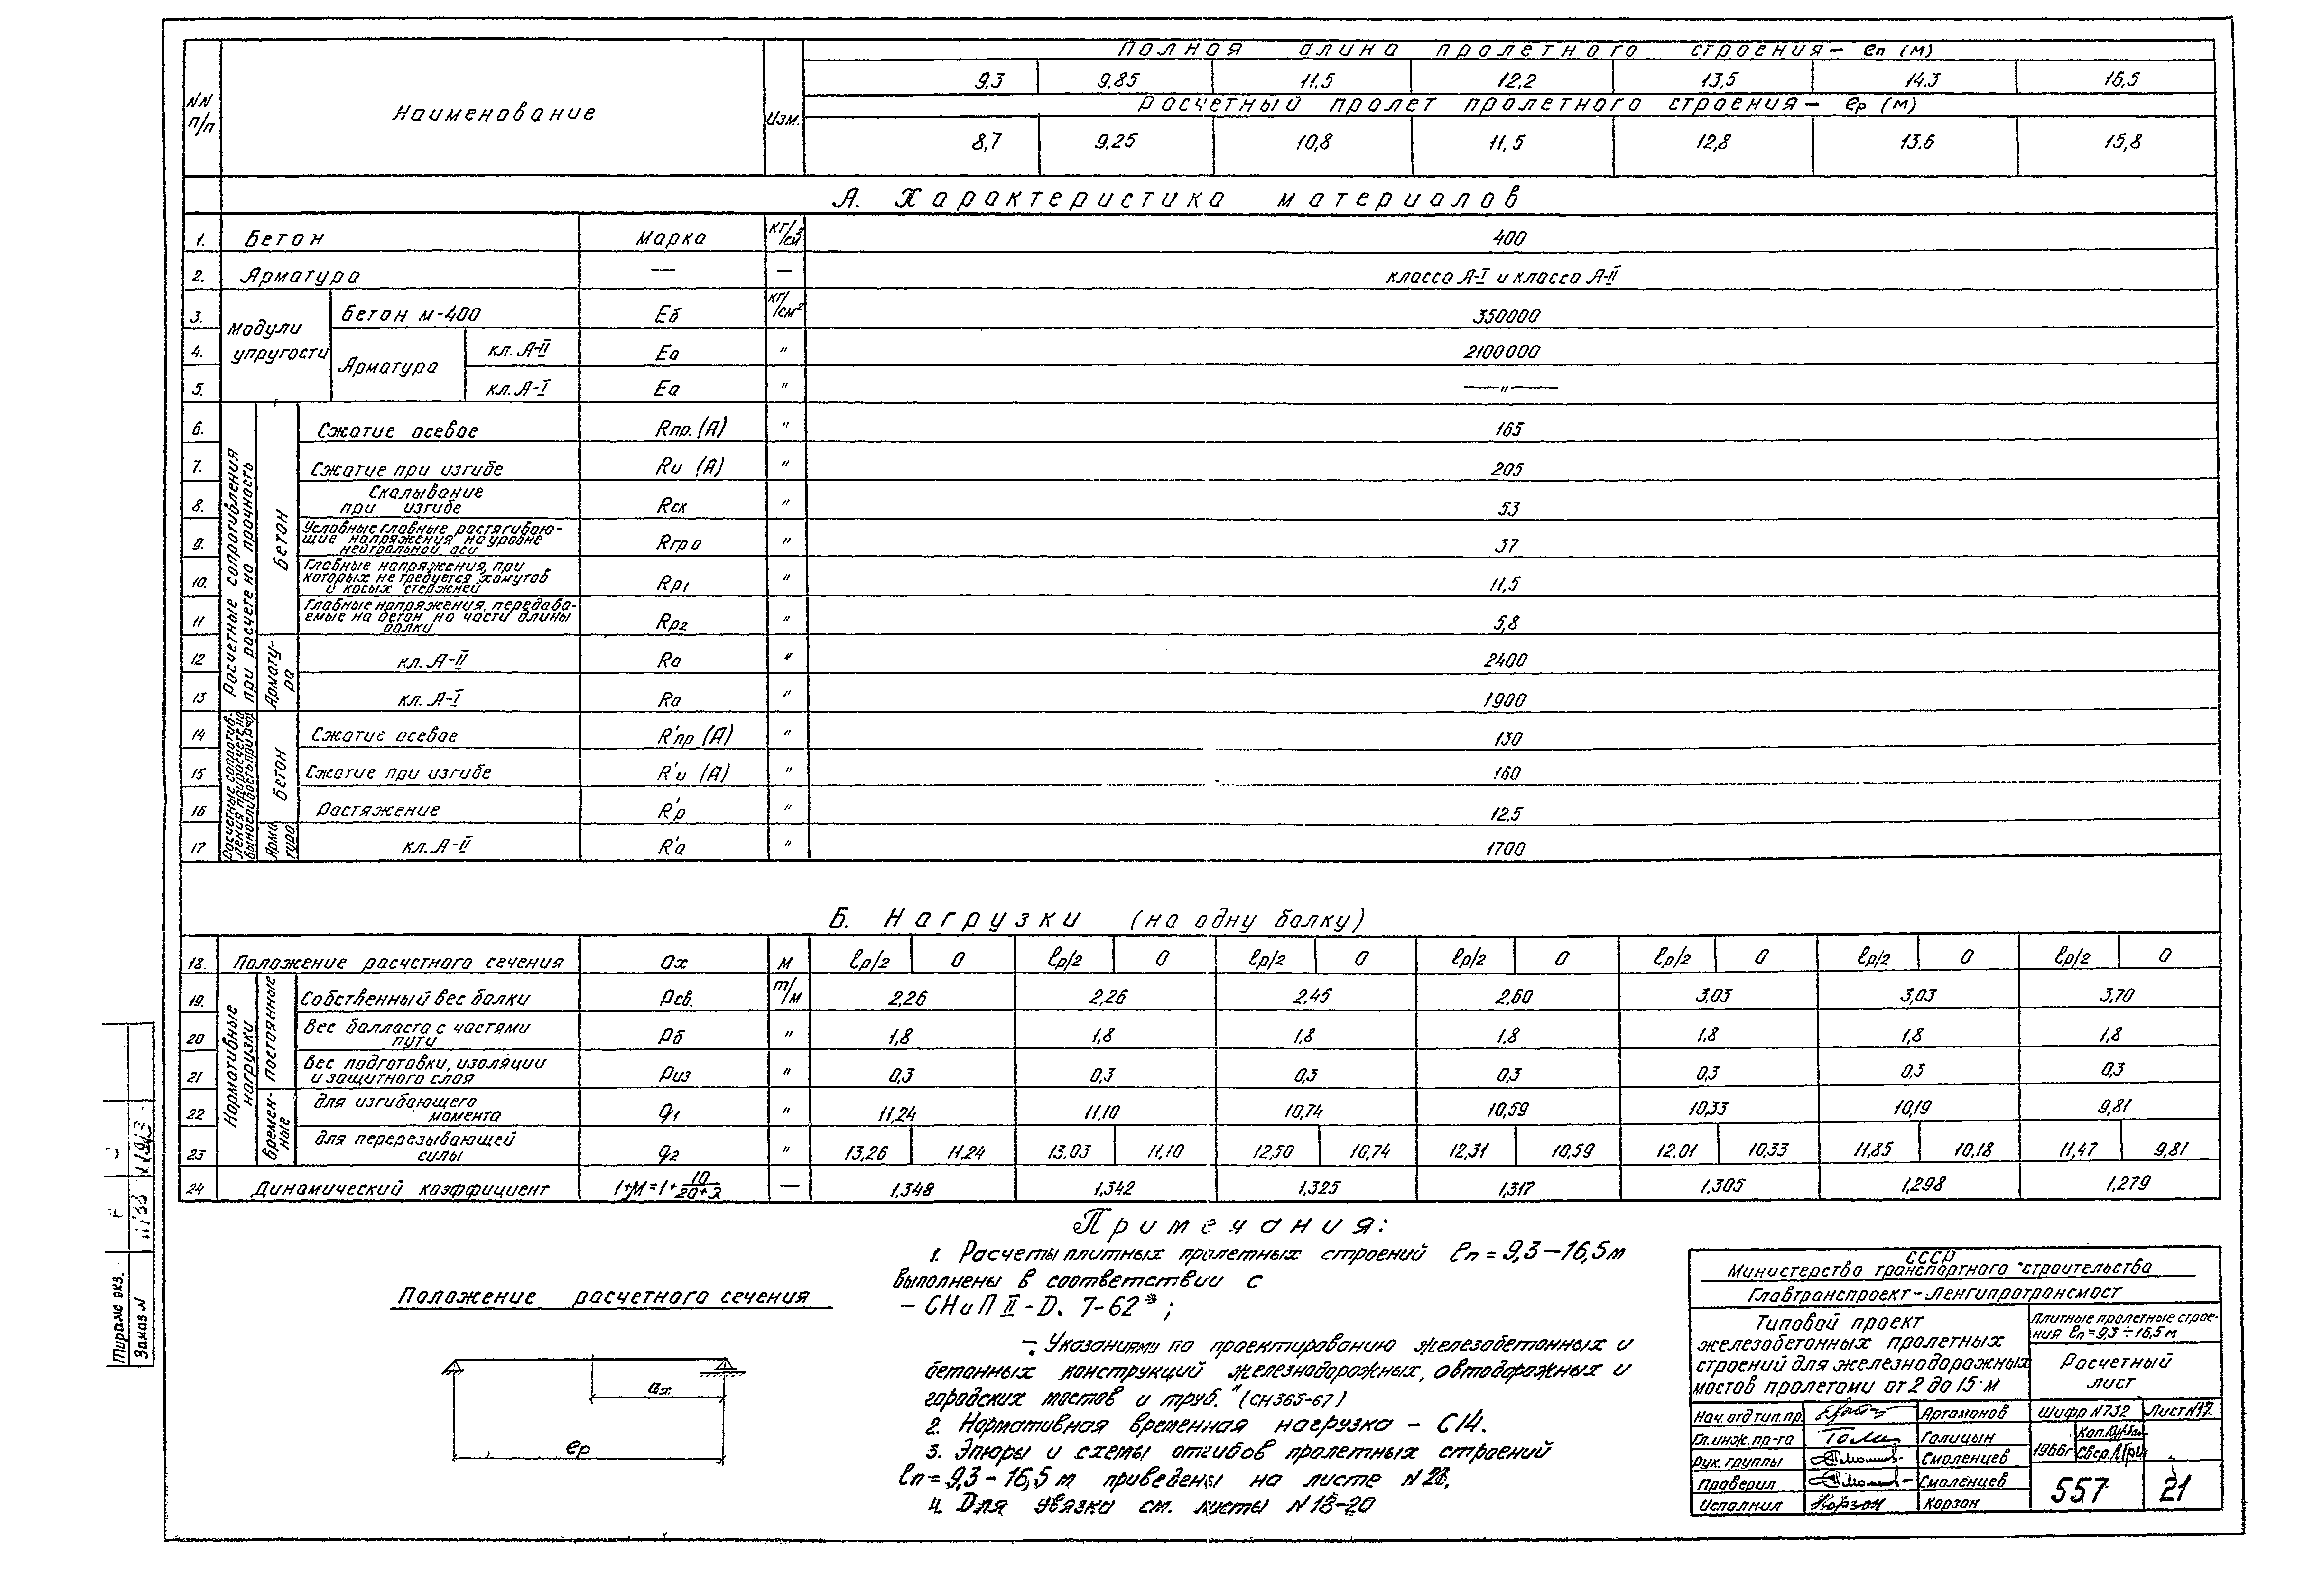 NN п/п Наименование Изм. Полная длина пролетного строения – ℓп (м)
9,3 9,85 11,5 12,2 13,5 14.3 16,5
Расчетный пролет пролетного строения – ℓр (м)
8,7 9,25 10,8 11,5 12,8 13.6 15,8
А. Характеристика материалов
1. Бетон Марка кг/см² 400
2. Арматура — — класса А-I и класса А-II
Модули упругости
3. Бетон м-400 Еб кг/см² 350000
4. Арматура кл. А-II Еа " 2100000
5. кл. А-I Еа " —"—
Расчетные сопротивления при расчете на прочность
Бетон
6. Сжатие осевое Rпр. (А) " 165
7. Сжатие при изгибе Rи (А) " 205
8. Скалывание при изгибе Rск " 53
9. Условные главные растягивающие напряжения на уровне нейтральной оси Rгро " 37
10. Главные напряжения, при которых не требуется хомутов и косых стержней Rр1 " 11,5
11 Главные напряжения, передаваемые на бетон на части длины балки Rр2 " 5,8
Арматура
12 кл. А-II Rа " 2400
13 кл. А-I Rа " 1900
Расчетные сопротивления при расчете на выносливость
Бетон
14 Сжатие осевое R'пр (А) " 130
15 Сжатие при изгибе R'и (А) " 160
16 Растяжение R'р " 12,5
Арматура
17 кл. А-II R'а " 1700
Б. Нагрузки (на одну балку)
18. Положение расчетного сечения ах м ℓр/2 0 ℓр/2 0 ℓр/2 0 ℓр/2 0 ℓр/2 0 ℓр/2 0 ℓр/2 0
Нормативные нагрузки
Постоянные
19. Собственный вес балки Рсв. т/м 2,26 2,26 2,45 2,60 3,03 3,03 3,70
20 Вес балласта с частями пути Рб " 1,8 1,8 1,8 1,8 1,8 1,8 1,8
21 Вес подготовки, изоляции и защитного слоя Риз " 0,3 0,3 0,3 0,3 0,3 0.3 0,3
Времен-ные
22 для изгибающего момента q1 " 11,24 11,10 10,74 10,59 10,33 10,19 9,81
23 для перерезывающей силы q2 " 13,26 11,24 13,03 11,10 12,50 10,74 12,31 10,59 12.01 10,33 11,85 10,18 11,47 9,81
24 Динамический коэффициент 1+М=1+10/20+λ — 1,348 1,342 1,325 1,317 1,305 1,298 1,279
Примечания:
1. Расчеты плитных пролетных строений ℓп = 9,3–16,5м
выполнены в соответствии с
– СНиП II-D. 7-62*;
– „Указаниями по проектированию железобетонных и
бетонных конструкций железнодорожных, автодорожных и
городских мостов и труб." (СН365-67)
2. Нормативная временная нагрузка – С14.
3. Эпюры и схемы отгибов пролетных строений
ℓп = 9,3 – 16,5 м приведены на листе N 22.
4. Для увязки см. листы N 18-20
Положение расчетного сечения
ах
ℓр
СССР
Министерство транспортного строительства
Главтранспроект – Ленгипротрансмост
Типовой проект
железобетонных пролетных
строений для железнодорожных
мостов пролетами от 2 до 15 м
Плитные пролетные строе-
ния ℓп = 9,3 ÷ 16,5 м
Расчетный
лист
Нач. отд тип.пр. Артамонов Шифр N732 Лист N17
Гл.инж.пр-та Голицын
Рук. группы Смоленцев 1966г
Проверил Смоленцев
Исполнил Корзон Корзон
557 21
Тираж экз.
Заказ N